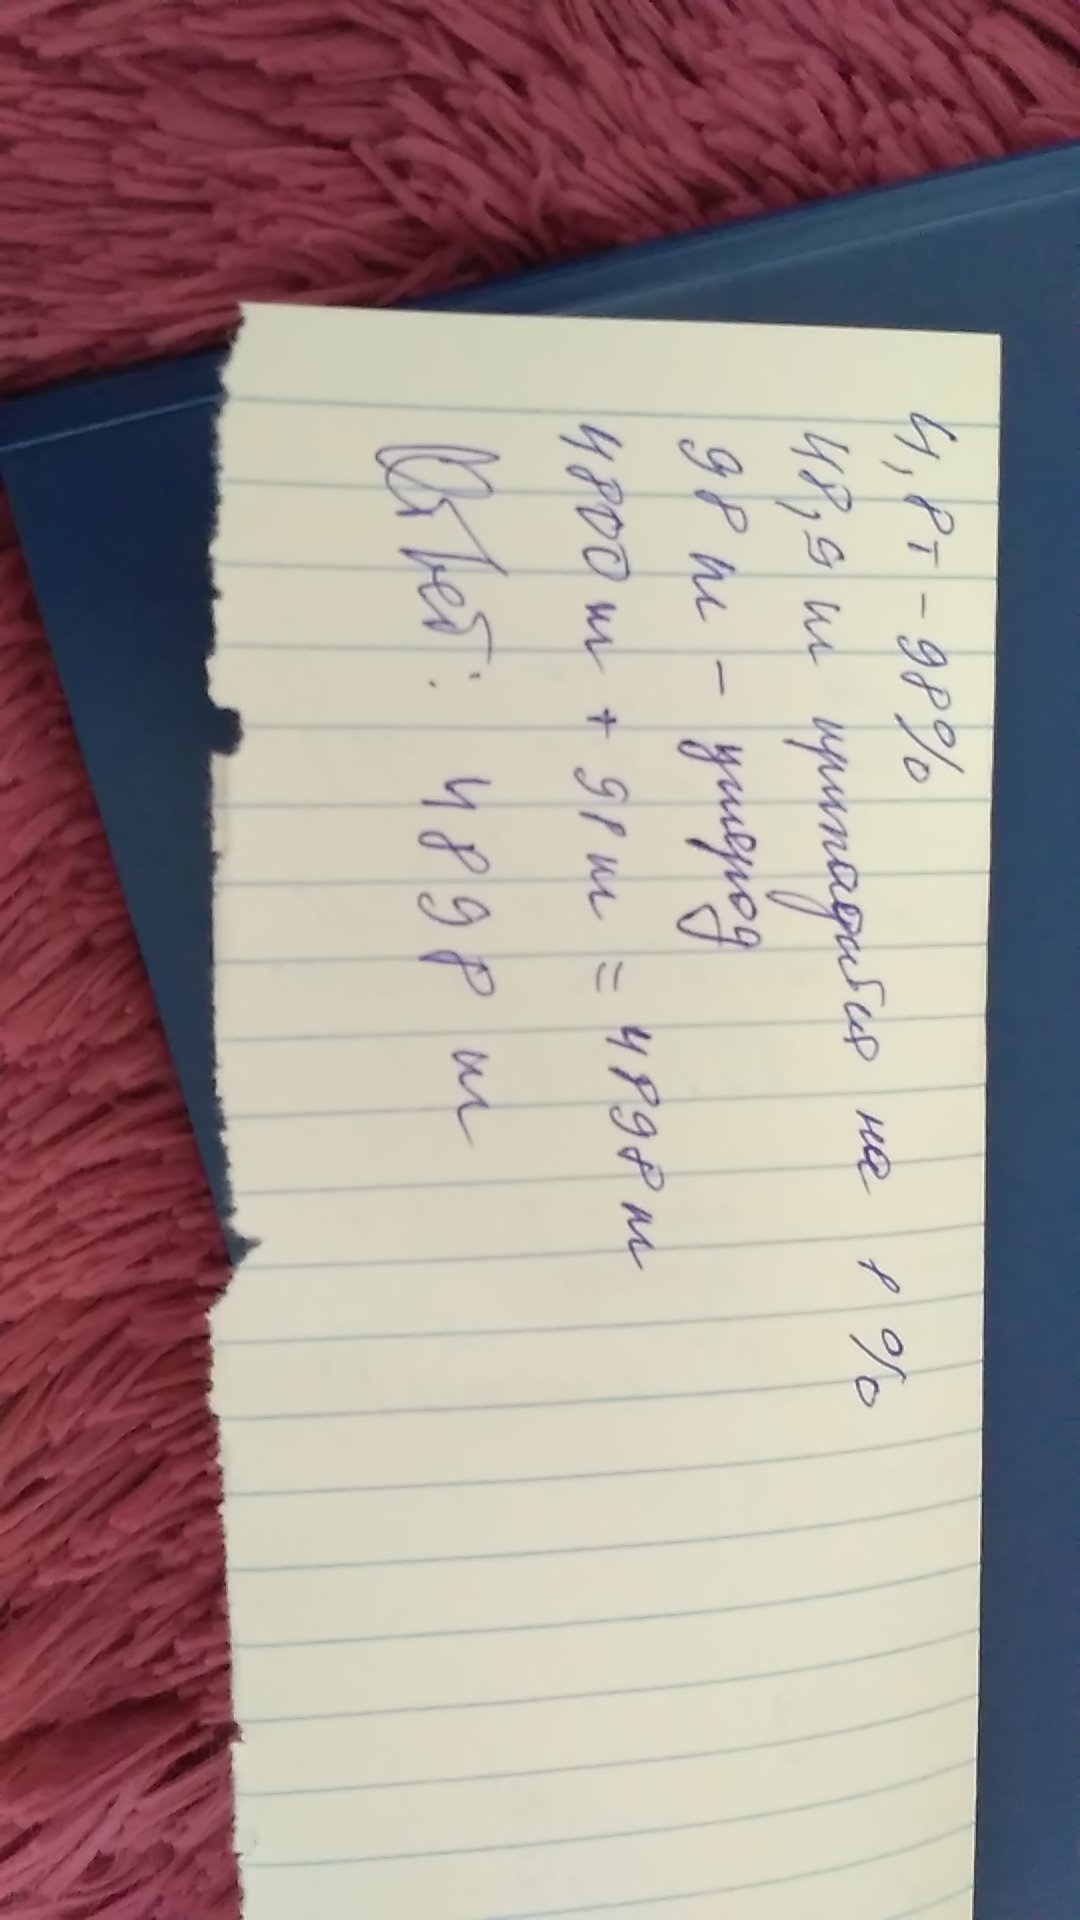 4,8т - 98%
48,9 т припадбия на 1 %
98 т - углерод
4800 т + 98 т = 4898 т
Ответ: 4898 т